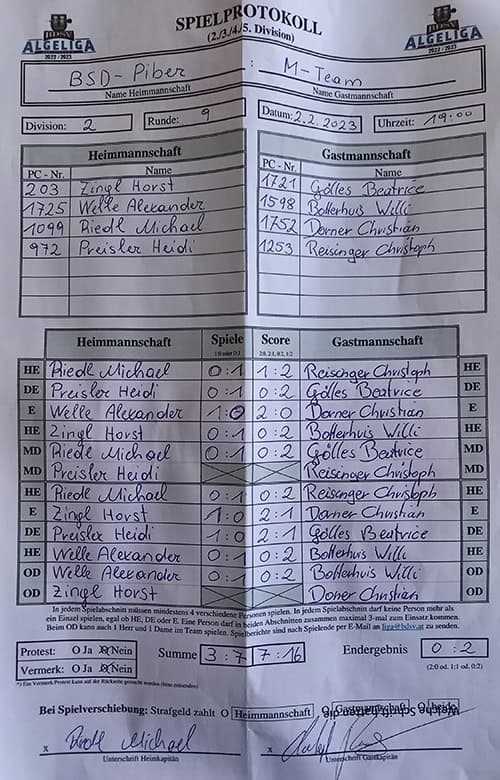 BDSV
ALGELIGA
2022/2023
SPIELPROTOKOLL
(2./3./4./5. Division)
BDSV
ALGELIGA
2022/2023
BSD-Piber : M-Team
Name Heimmannschaft Name Gastmannschaft
Division: 2 Runde: 9 Datum: 2.2.2023 Uhrzeit: 19:00
Heimmannschaft Gastmannschaft
PC - Nr. Name PC - Nr. Name
203 Zingl Horst 1721 Gölles Beatrice
1725 Welle Alexander 1598 Botterhuis Willi
1099 Riedl Michael 1752 Dorner Christian
972 Preisler Heidi 1253 Reisinger Christoph
Heimmannschaft Spiele Score Gastmannschaft
1:0 oder 0:1 2:0, 2:1, 0:2, 1:2
HE Riedl Michael 0:1 1:2 Reisinger Christoph HE
DE Preisler Heidi 0:1 0:2 Gölles Beatrice DE
E Welle Alexander 1:0 2:0 Dorner Christian E
HE Zingl Horst 0:1 0:2 Botterhuis Willi HE
MD Riedl Michael 0:1 0:2 Gölles Beatrice MD
MD Preisler Heidi Reisinger Christoph MD
HE Riedl Michael 0:1 0:2 Reisinger Christoph HE
E Zingl Horst 1:0 2:1 Dorner Christian E
DE Preisler Heidi 1:0 2:1 Gölles Beatrice DE
HE Welle Alexander 0:1 0:2 Botterhuis Willi HE
OD Welle Alexander 0:1 0:2 Botterhuis Willi OD
OD Zingl Horst Doner Christian OD
In jedem Spielabschnitt müssen mindestens 4 verschiedene Personen spielen. In jedem Spielabschnitt darf keine Person mehr als
ein Einzel spielen, egal ob HE, DE oder E. Eine Person darf in beiden Abschnitten zusammen maximal 3-mal zum Einsatz kommen.
Beim OD kann auch 1 Herr und 1 Dame im Team spielen. Spielberichte sind nach Spielende per E-Mail an liga@bdsv.at zu senden.
Protest: O Ja O Nein Summe 3:7 7:16 Endergebnis 0:2
Vermerk: O Ja O Nein (2:0 od. 1:1 od. 0:2)
*) Ein Vermerk Protest kann auf der Rückseite gemacht werden (bitte ankreuzen)
Bei Spielverschiebung: Strafgeld zahlt O Heimmannschaft O Gastmannschaft O beide
x Riedl Michael x
Unterschrift Heimkapitän Unterschrift Gastkapitän